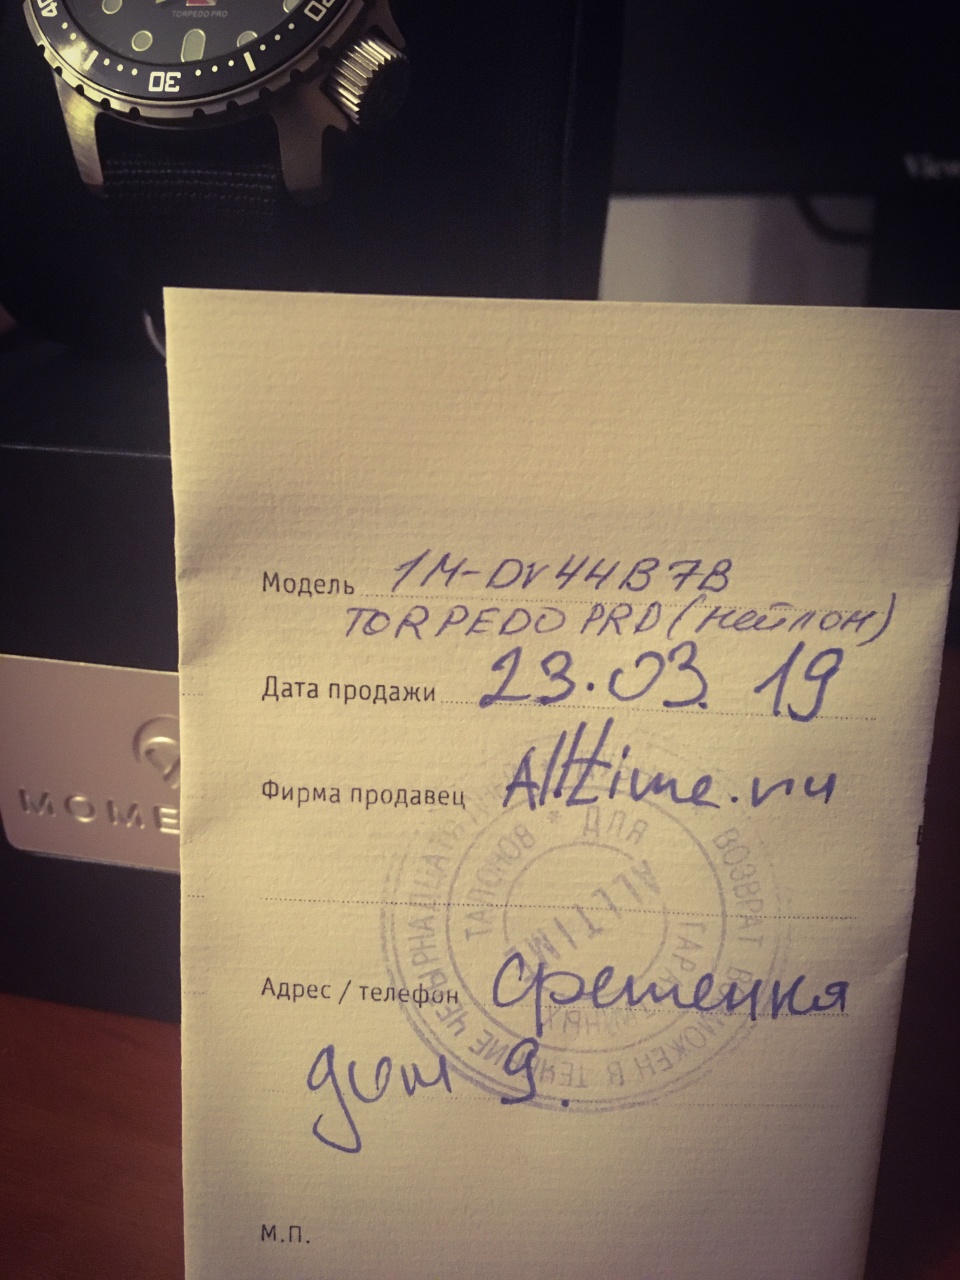 40
30
20
TORPEDO PRO
View
Модель 1M-DV44B7B
TORPEDO PRO (нейлон)
Дата продажи 23.03.19
MOME
Фирма продавец Alltime.ru
ВОЗВРАТ ВОЗМОЖЕН В ТЕЧЕНИЕ ЧЕТЫРНАДЦАТИ
* ДЛЯ ГАРАНТИЙНЫХ ТАЛОНОВ
ALLTIME
Адрес / телефон Сретенка
дом 9.
М.П.